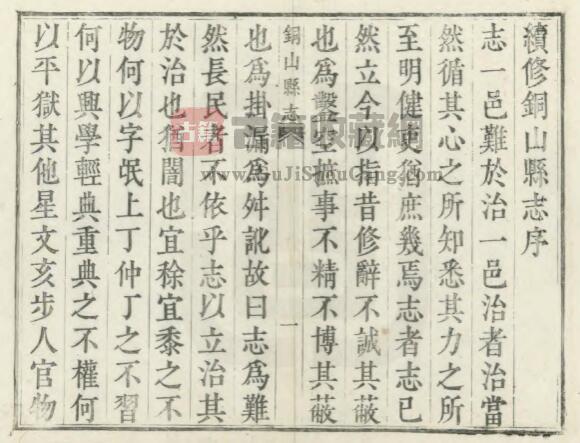 續修銅山縣志序
志一邑難於治一邑治者治當
然循其心之所知悉其力之所
至明健吏猶庶幾焉志者志已
然立今以指昔修辭不誠其蔽
也為鑿空摭事不精不博其蔽
銅山縣志
一
也為掛漏為舛訛故曰志為難
然長民者不依乎志以立治其
於治也猶闇也宜稌宜黍之不
物何以字氓上丁仲丁之不習
何以興學輕典重典之不權何
以平獄其他星文亥步人官物
古籍
古籍收藏網
www.GuJiShouCang.com